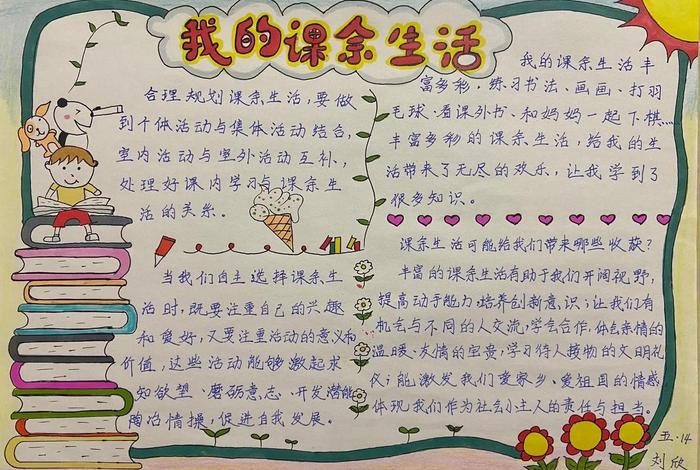 我的课余生活
合理规划课余生活,要做
到个体活动与集体活动结合,
室内活动与室外活动互补,
处理好课内学习与课余生
活的关系。
当我们自主选择课余生
活时,既要注重自己的兴趣
和爱好,又要注重活动的意义和
价值,这些活动能够激起求
知欲望、磨砺意志、开发潜能
陶冶情操,促进自我发展。
我的课余生活丰
富多彩,练习书法、画画、打羽
毛球、看课外书、和妈妈一起下棋……
丰富多彩的课余生活,给我的生
活带来了无尽的欢乐,让我学到了
很多知识。
课余生活可能给我们带来哪些收获?
丰富的课余生活有助于我们开阔视野,
提高动手能力,培养创新意识;让我们有
机会与不同的人交流,学会合作,体会亲情的
温暖、友情的宝贵,学习待人接物的文明礼
仪;能激发我们爱家乡、爱祖国的情感
体现我们作为社会小主人的责任与担当。
五.14
刘欣